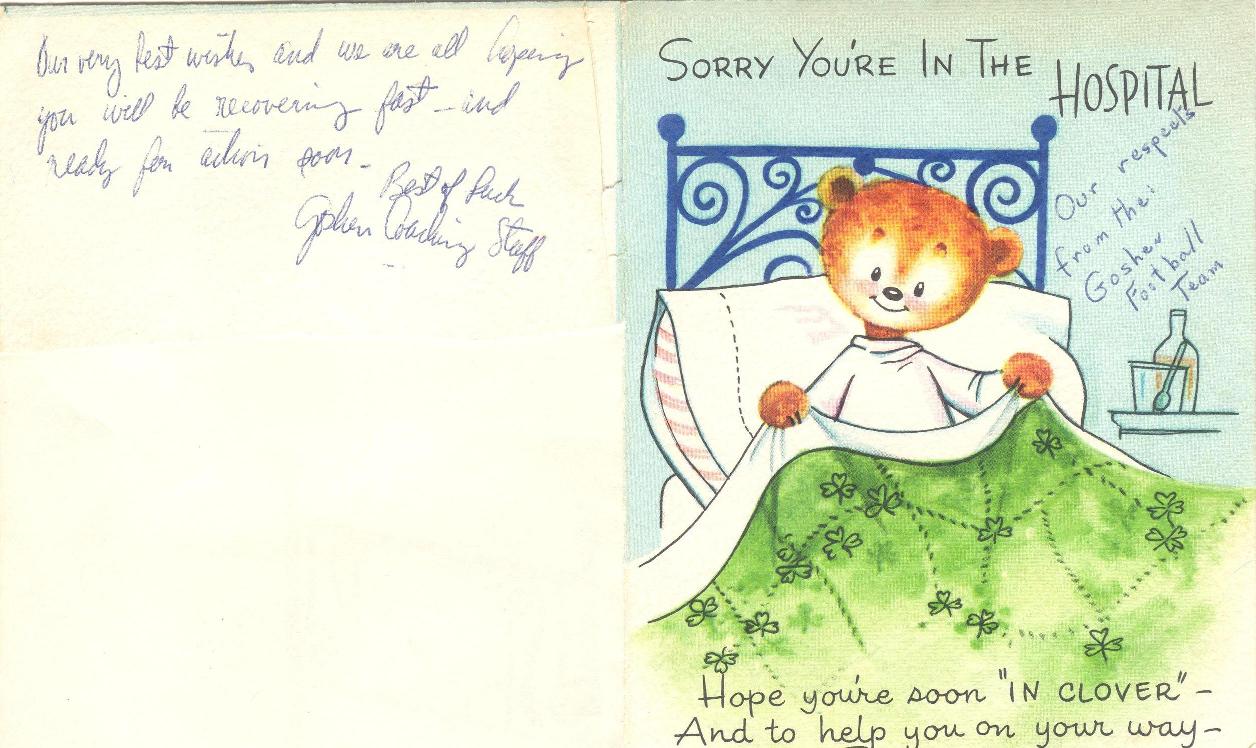 Our very best wishes and we are all hoping
you will be recovering fast – and
ready for action soon –
Best of luck
Goshen Coaching Staff
SORRY YOU'RE IN THE HOSPITAL
Our respects
from the:
Goshen
Football
Team
Hope you're soon "IN CLOVER" –
And to help you on your way –